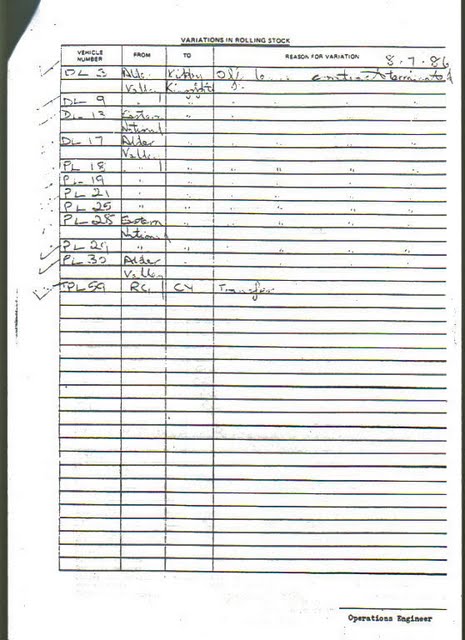 VARIATIONS IN ROLLING STOCK
VEHICLE NUMBER FROM TO REASON FOR VARIATION 8.7.86
DL 3 Alder Kirkby Off contract terminated
Valley
DL 9 " " " " " "
DL 13 Eastern " " " " "
National
DL 17 Alder " " " " "
Valley
PL 18 " " " " " "
PL 19 " " " " " "
PL 21 " " " " " "
PL 25 " " " " " "
PL 28 Eastern " " " " "
National
PL 29 " " " " " "
PL 30 Alder " " " " "
Valley
TPL 59 RG CY Transfer
Operations Engineer